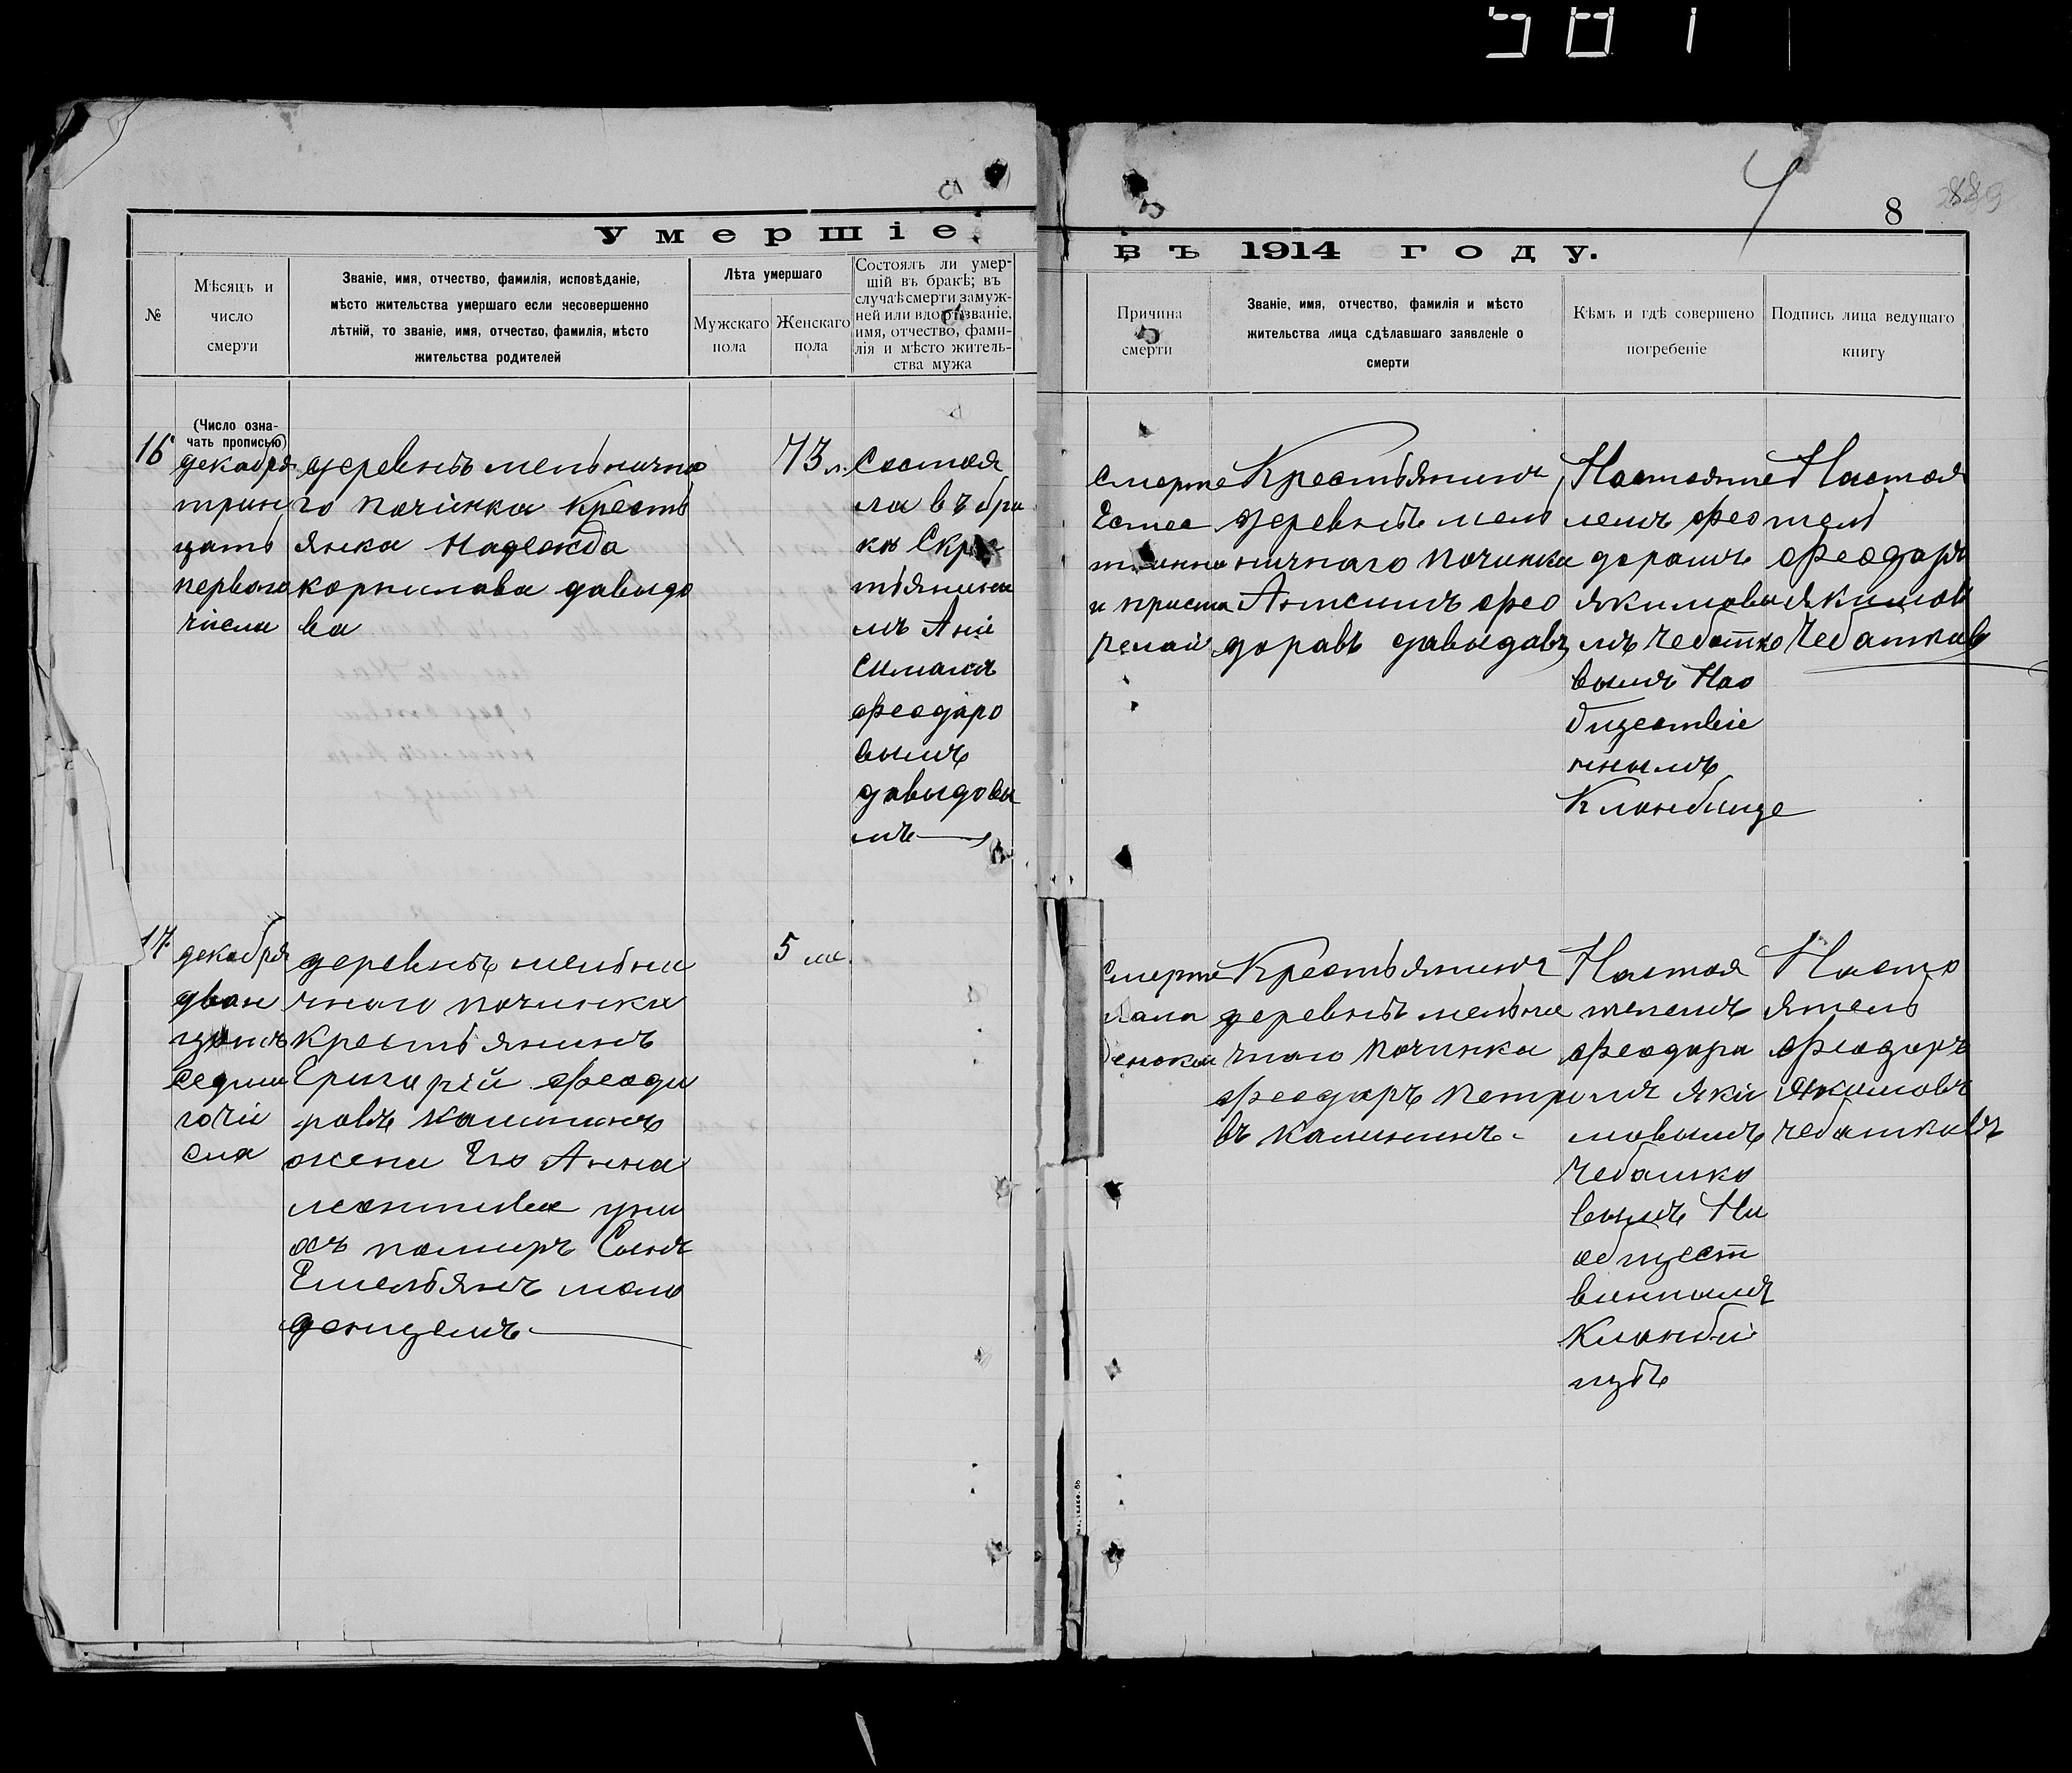 581
4
8
Умершіе
въ 1914 году.
№
Мѣсяцъ и
число
смерти
Званіе, имя, отчество, фамилія, исповѣданіе,
мѣсто жительства умершаго если несовершенно
лѣтній, то званіе, имя, отчество, фамилія, мѣсто
жительства родителей
Лѣта умершаго
Мужскаго
пола
Женскаго
пола
Состоялъ ли умер-
шій въ бракѣ; въ
случаѣ смерти замуж-
ней или вдовы званіе,
имя, отчество, фами-
лія и мѣсто житель-
ства мужа
Причина
смерти
Званіе, имя, отчество, фамилія и мѣсто
жительства лица сдѣлавшаго заявленіе о
смерти
Кѣмъ и гдѣ совершено
погребеніе
Подпись лица ведущаго
книгу
(Число озна-
чать прописью)
16
декабря
трин
цать
первого
числа
деревнѣ мельнично
го починка Кресть
янка Надежда
корнилова давыдо
ва
73 л.
Состоя
ла въ бра
кѣ Скре
тьянина
мъ Ани
симамъ
феодаро
вымъ
давыдовы
мъ
Смерте
Естес
и приста
релай
Крестьянинъ
деревнѣ мель
ничнаго починка
Анисимъ фео
доравъ давыдавъ
Настояте
лемъ фео
дорамъ
якимовы
мъ чебатко
вымъ Нао
бществіе
нымъ
Кланбище
Настоя
тель
феодаръ
якимовъ
Чебаткавъ
17
декабря
дван
цать
седьма
го чи
сла
деревнѣ мельни
чнаго починка
крестьянинъ
Григорій феода
ровъ калининъ
жена Его Анна
леонтивва уни
хъ памиръ Сынъ
Емельянъ мла
денцемъ
5 ме.
Смерте
Крестьянинъ
деревнѣ мельни
чнаго починка
феодаръ петро
въ калининъ
Настоя
телемъ
феодара
мъ яки
мовымъ
Чебатко
вымъ На
общест
винномъ
Кланби
щѣ
Насто
ятель
феодаръ
Якимовъ
чебаткавъ